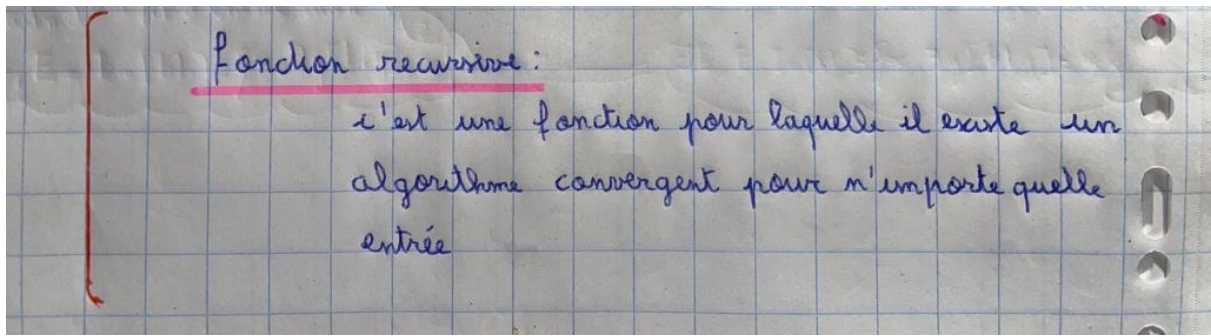 fonction recursive :
c'est une fonction pour laquelle il existe un
algorithme convergent pour n'importe quelle
entrée